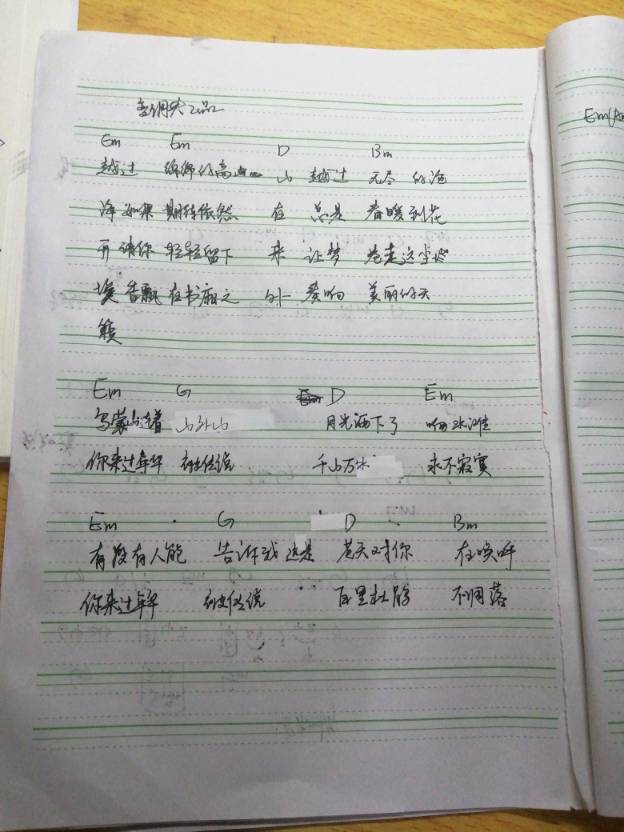 变调夹2品
Em Em D Bm
越过 绵绵的高 山 越过 无尽 的沧
海 如果 期待依然 在 总是 春暖到花
开 请你 轻轻留下 来 让梦 卷走这尘
埃 香飘 在书 之 外 奏响 美丽的天
籁
Em G D Em
乌蒙山连着 山外山 月光洒下了 响水滩
你来过年华 被传说 千山万水 永不寂寞
Em G D Bm
有没有人能 告诉我 这是 苍天对你 在唤呼
你来过年华 被传说 百里杜鹃 不凋落